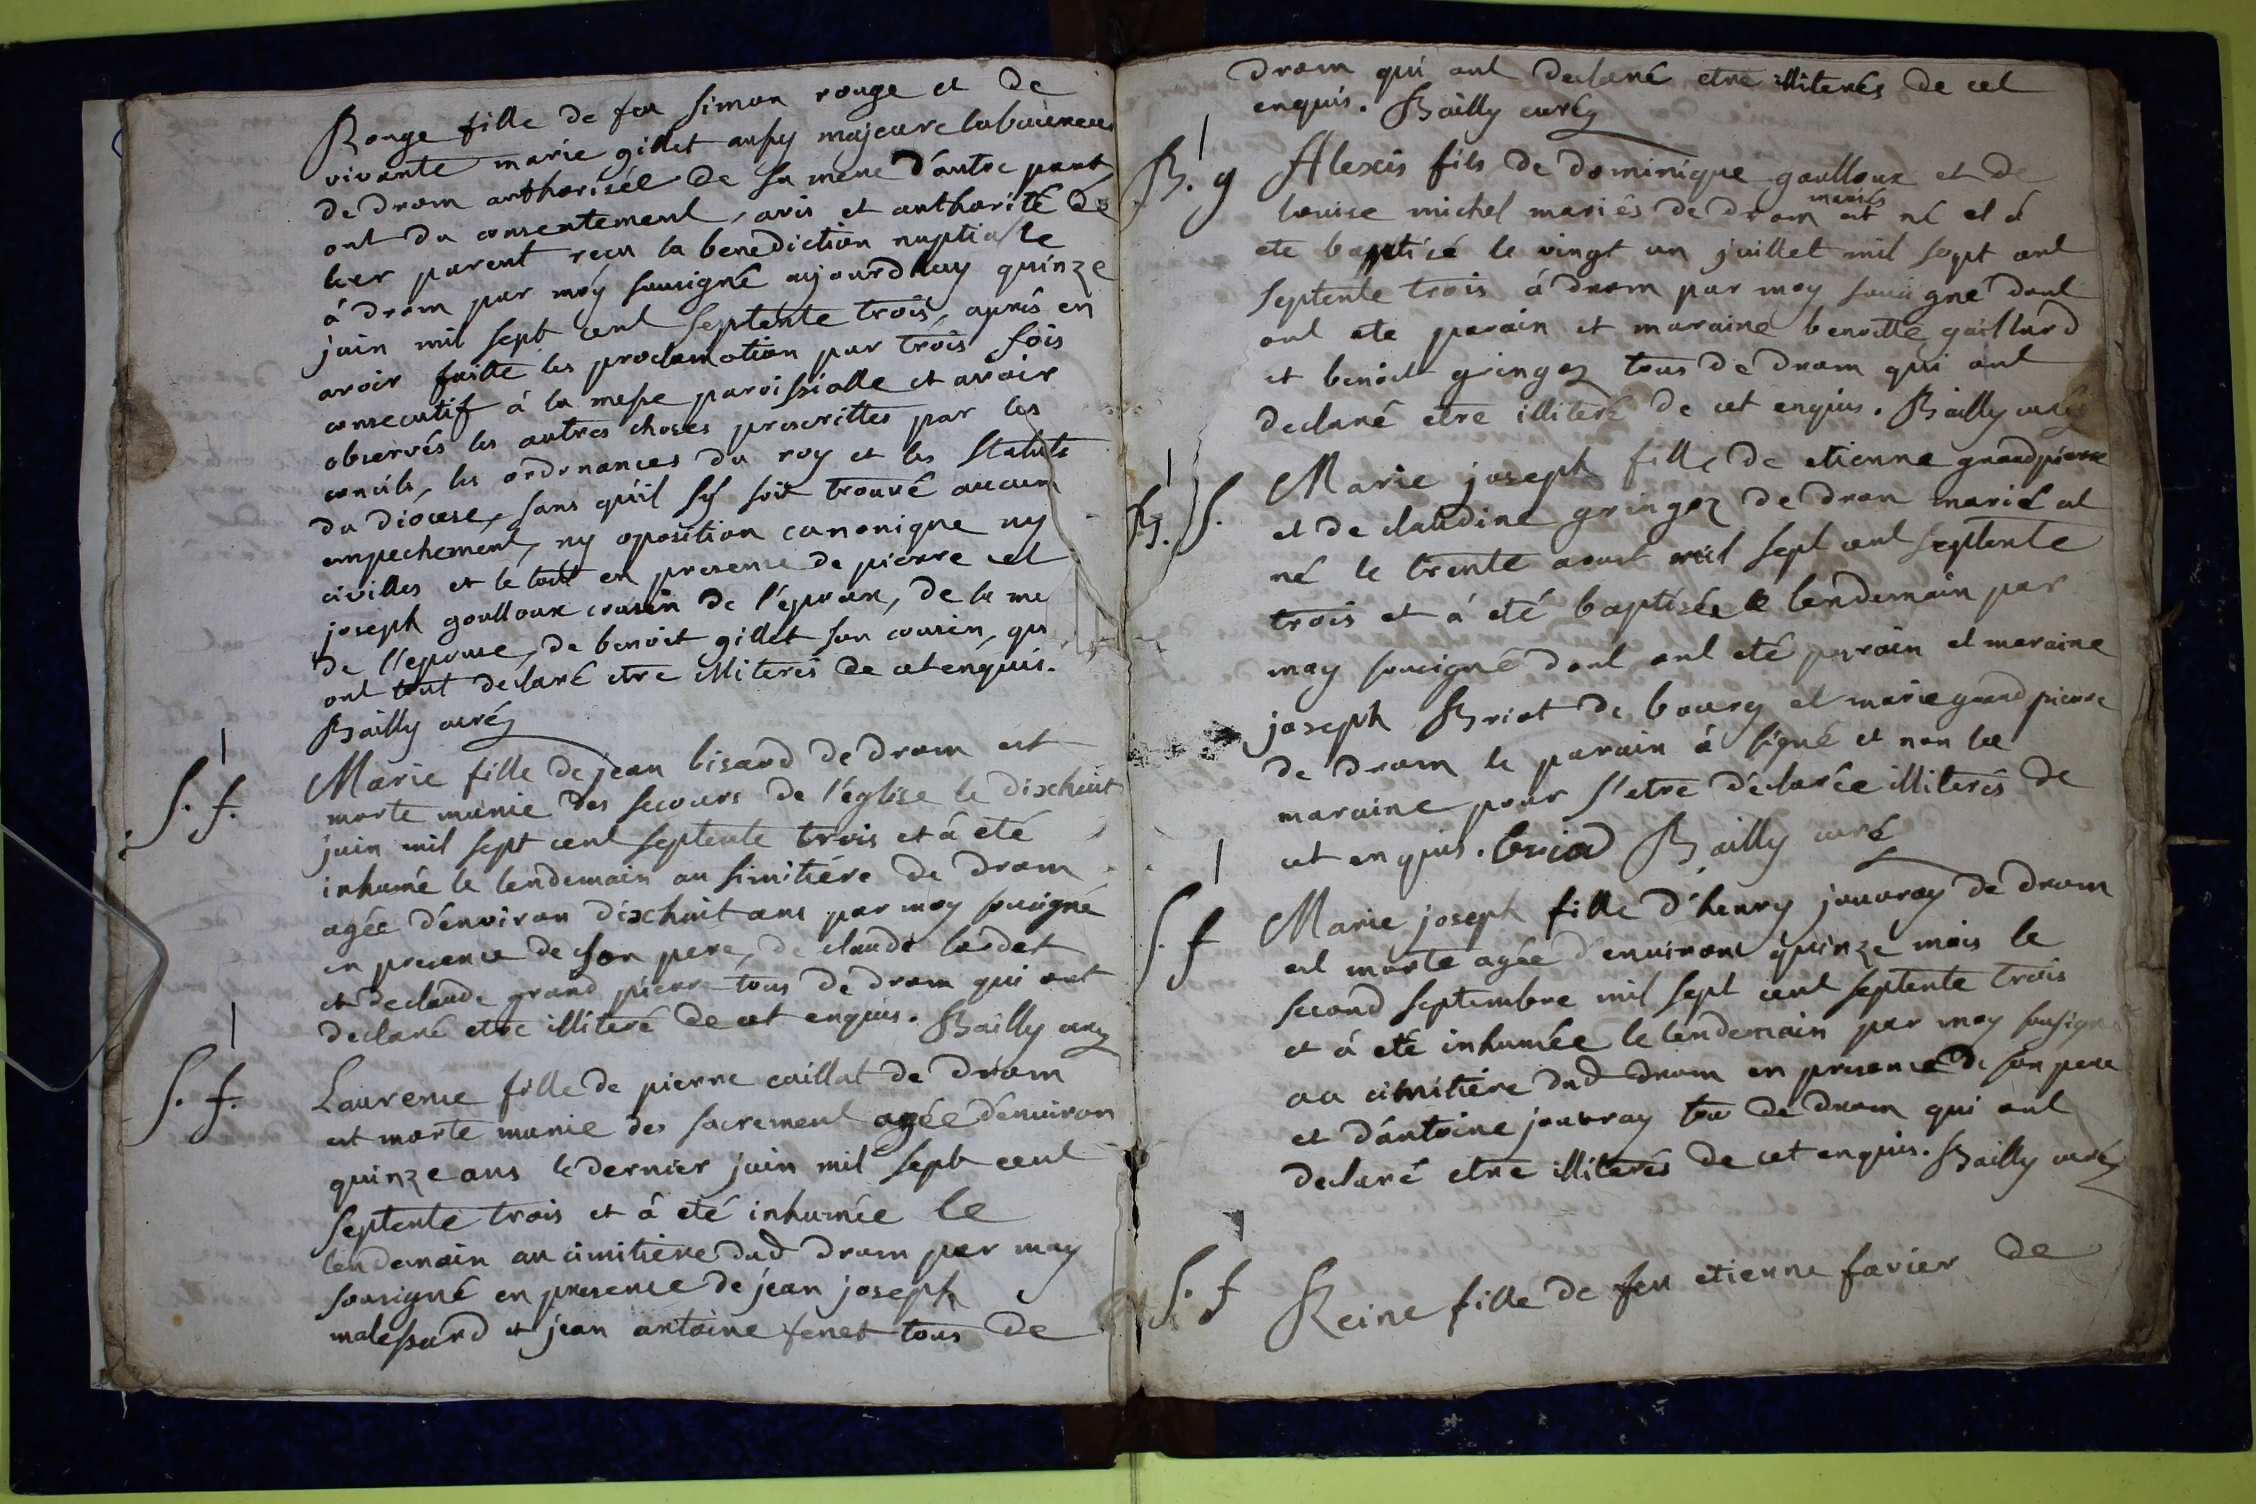 Rouge fille de feu simon rouge et de
vivante marie gillet aussy majeure laboureurs
de drom authorisée de sa mere d'autre part
ont du consentement, avis et authorité de
leur parent reçu la benediction nuptialle
á drom par moy sousigné aujourdhuy quinze
juin mil sept cent septente trois, aprês en
avoir faitte les proclamation par trois fois
consecutif á la messe paroissialle et avoir
observés les autres choses prescrittes par les
conciles, les ordonnances du roy et les statuts
du diocese, sans qu'il s'y soit trouvé aucun
empechement, ny oposition canonique ny
civilles et le tout en presence de pierre et
joseph goulloux cousin de l'epoux, de la me
de l'epouse, de benoit gillet son cousin, qui
ont tout declaré etre illiterés de cet enquis.
Bailly curé
S. f.
Marie fille de jean bisard de drom est
morte munie des secours de l'église le dixhuit
juin mil sept cent septente trois et á eté
inhumé le lendemain au simitiére de drom
agée d'environ dixhuit ans par moy sousigné
en presence de son pere, de claude
et de claude grand pierre tous de drom qui ont
declaré etre illiteré de cet enquis. Bailly curé
S. f.
Laurence fille de pierre caillat de drom
est morte munie des sacrement agée d'environ
quinze ans le dernier juin mil sept cent
septente trois et á eté inhumée le
lendemain au cimitiére dud drom par moy
sousigné en presence de jean joseph
malessard et jean antoine fenet tous de
drom qui ont declaré etre illiterés de cet
enquis. Bailly curé
B. g
Alexis fils de dominique goulloux et de
mariés
louise michel mariés de drom est né et á
ete baptisé le vingt un juillet mil sept cent
septente trois á drom par moy sousigné dont
ont ete parain et maraine benoitte gaillard
et benoit gringoz tous de drom qui ont
declaré etre illiteré de cet enquis. Bailly curé
B. f.
Marie joseph fille de etienne grandpierre
et de claudine gringoz de drom marié est
né le trente aoust mil sept cent septente
trois et á eté baptisée le lendemain par
moy sousigné dont ont eté parain et maraine
joseph Briot de bourg et marie grand pierre
de drom le parain á signé et non la
maraine pour s'etre déclarée illiterés de
cet enquis. briod Bailly curé
S. f
Marie joseph fille d'henry jouvray de drom
est morte agée d'environt quinze mois le
second septembre mil sept cent septente trois
et á eté inhumée le lendemain par moy sousigné
au cimitiére dud drom en presence de son pere
et d'antoine jouvray tou de drom qui ont
declaré etre illiterés de cet enquis. Bailly curé
S. f
Reine fille de feu etienne favier de